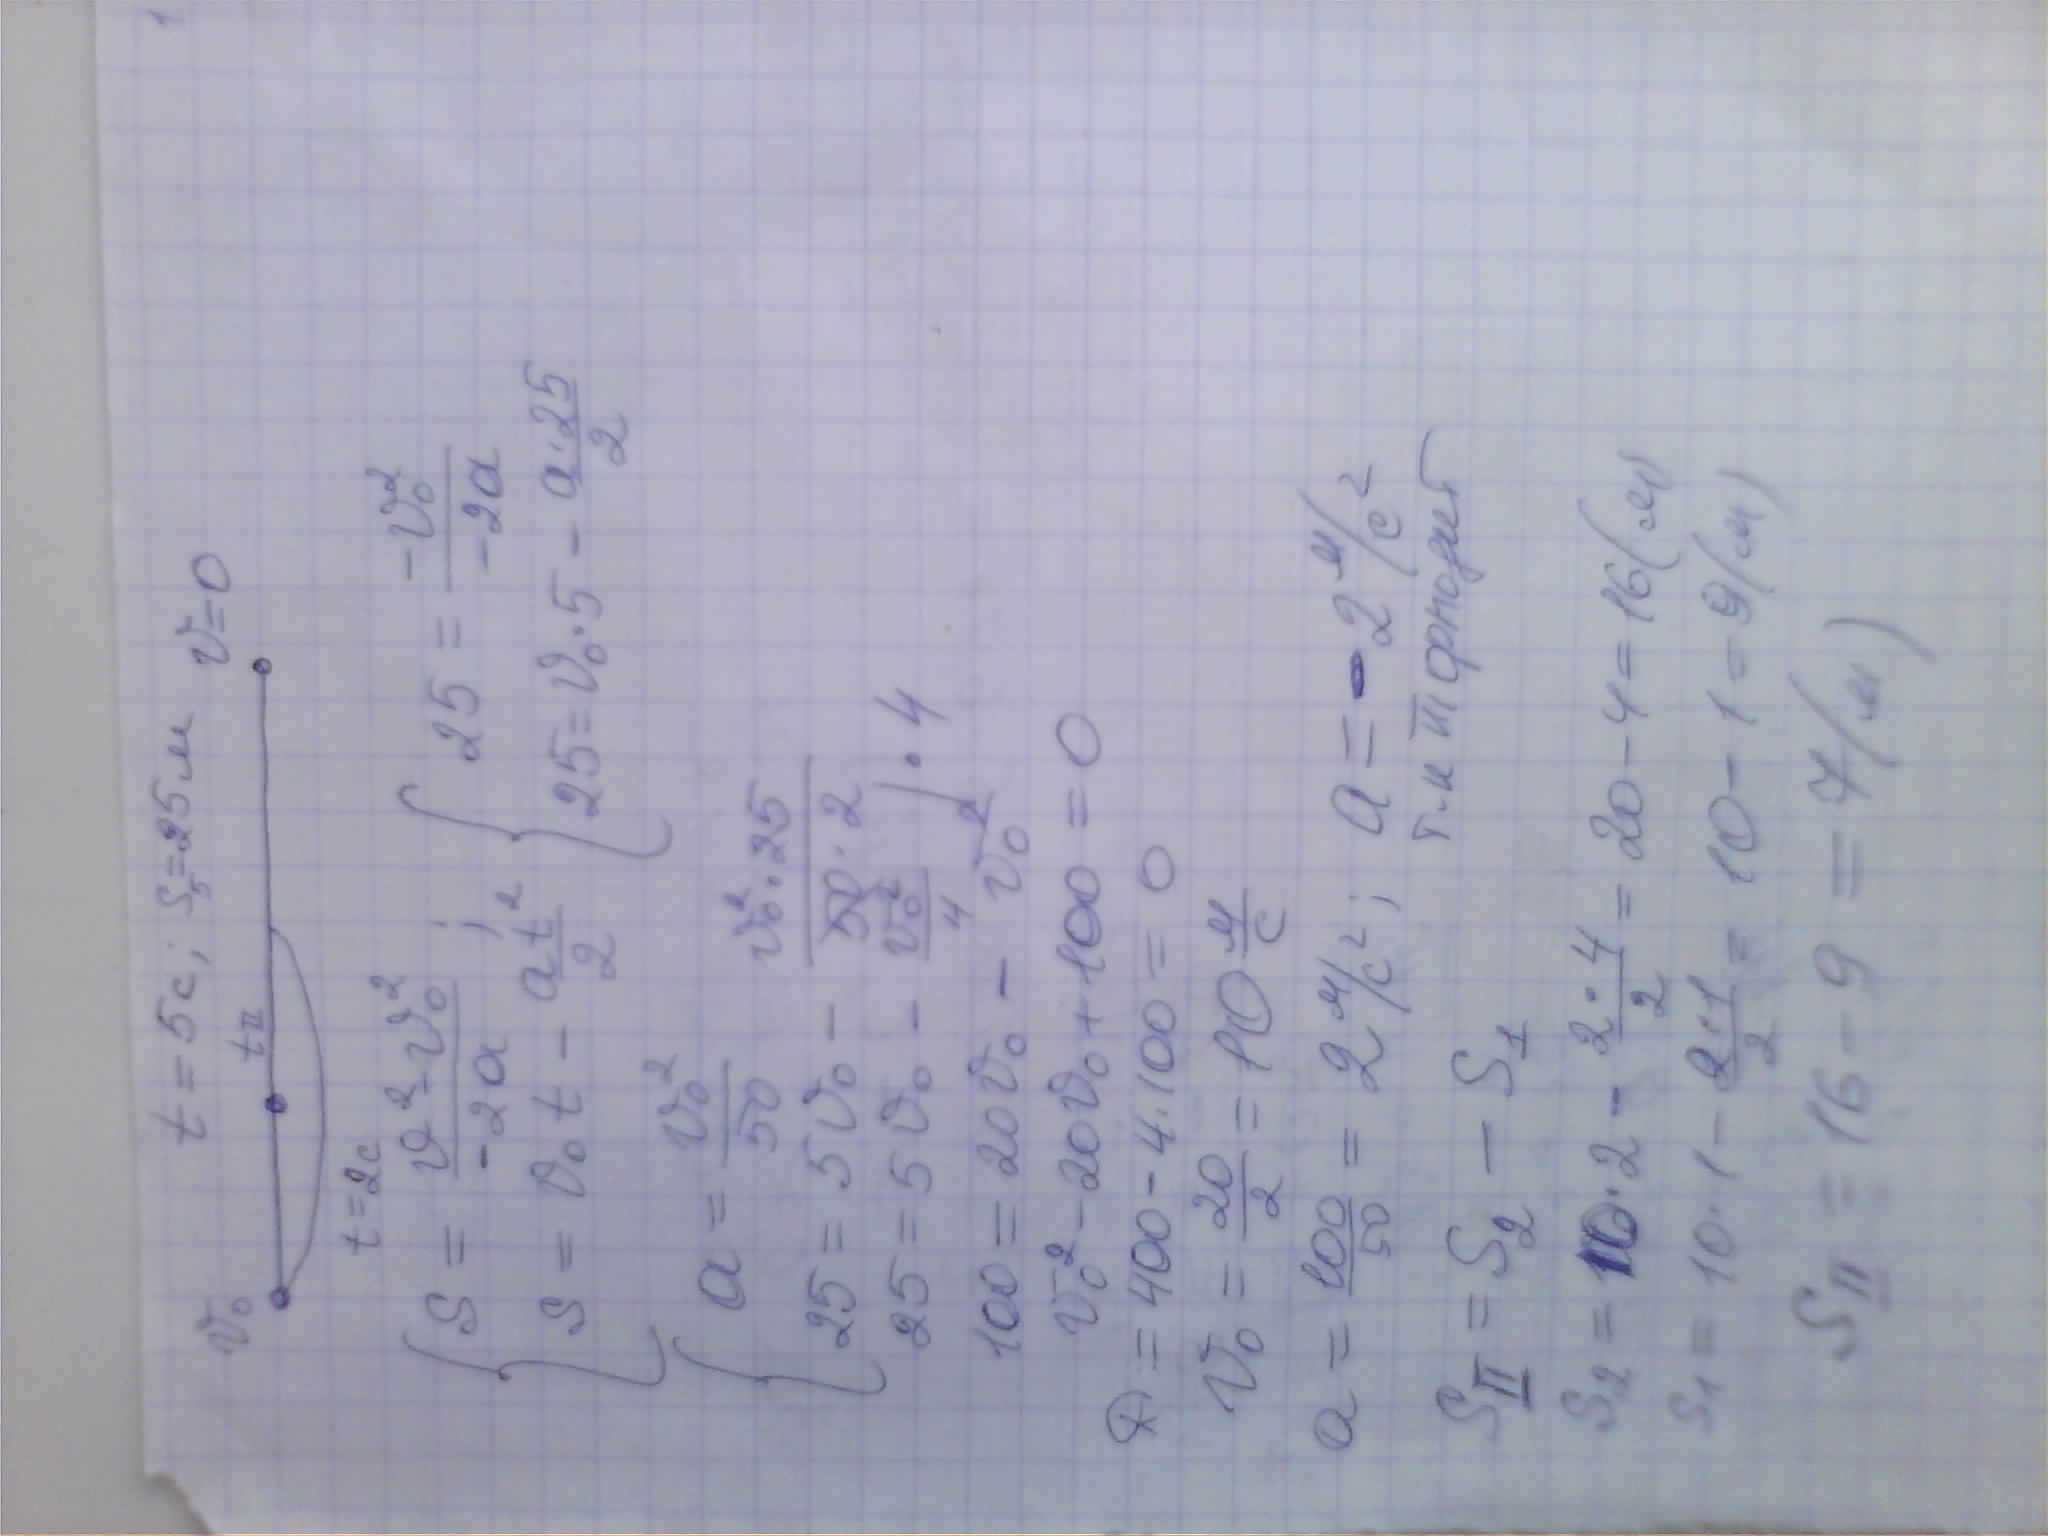 t = 5c; S₅ = 25м
v₀ t_II v = 0
t = 2c
{ S = (v² - v₀²)/(-2a) ; { 25 = (-v₀²)/(-2a)
S = v₀t - at²/2 25 = v₀·5 - a·25/2
{ a = v₀²/50
25 = 5v₀ - v₀²·25/(50·2)
25 = 5v₀ - v₀²/4 | ·4
100 = 20v₀ - v₀²
v₀² - 20v₀ + 100 = 0
D = 400 - 4·100 = 0
v₀ = 20/2 = 10 м/с
a = 100/50 = 2 м/с² ; a = -2 м/с²
т.к тормозит
S_II = S₂ - S₁
S₂ = 10·2 - 2·4/2 = 20 - 4 = 16 (м)
S₁ = 10·1 - 2·1/2 = 10 - 1 = 9 (м)
S_II = 16 - 9 = 7 (м)